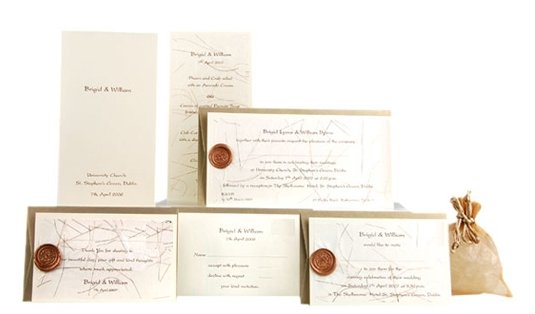 Brigid & William
University Church
St. Stephen's Green, Dublin
7th April 2008
Brigid & William
7th April 2007
Prawn and Crab salad
with an Avocado Cream
Brigid Lyons & William Byrne
together with their parents request the pleasure of the company
to join them in celebrating their marriage
at University Church, St. Stephen's Green, Dublin
on Saturday 7th April 2007 at 2.00pm
followed by a reception in The Shelbourne Hotel, St. Stephen's Green, Dublin
RSVP
Thank You for sharing in
our beautiful day, your gift and kind thoughts
where much appreciated.
Brigid & William
7th April 2007
Brigid & William
7th April 2008
Name
accept with pleasure
decline with regret
your kind invitation.
Brigid & William
would like to invite
to join them for the
evening celebration of their wedding
on Saturday 7th April 2007 at 8.30pm
in The Shelbourne Hotel St. Stephen's Green, Dublin